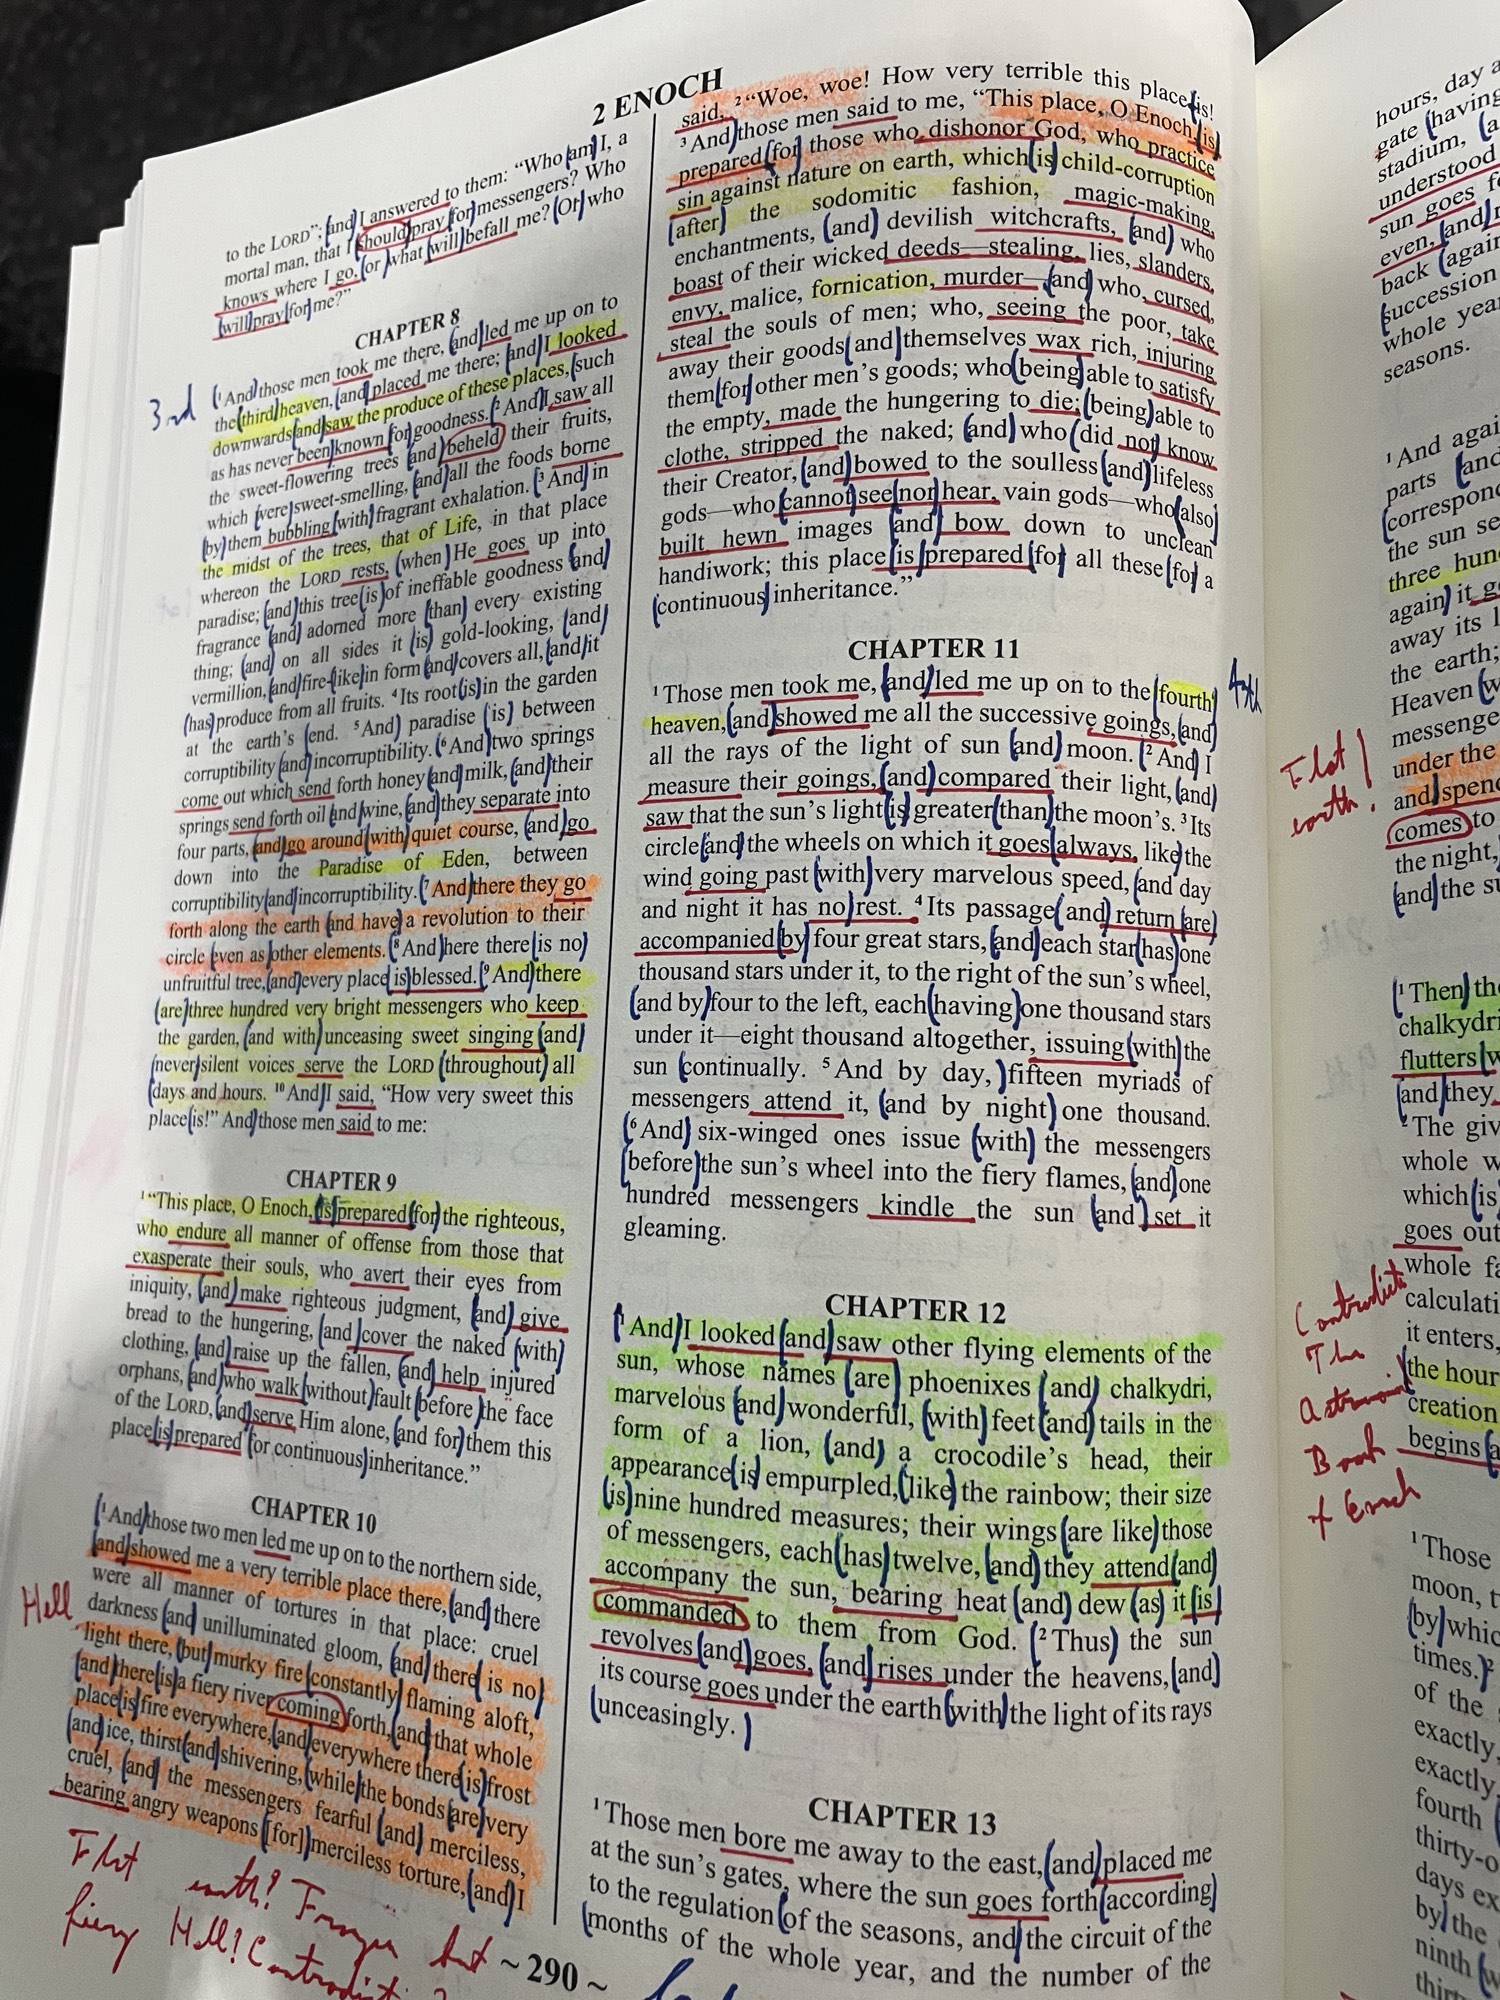 2 ENOCH
to the LORD”; and I answered to them: “Who am I, a
mortal man, that I should pray for messengers? Who
knows where I go, or what will befall me? Or who
will pray for me?”
CHAPTER 8
3rd
¹And those men took me there, and led me up on to
the third heaven, and placed me there; and I looked
downwards and saw the produce of these places, such
as has never been known for goodness. ²And I saw all
the sweet-flowering trees and beheld their fruits,
which were sweet-smelling, and all the foods borne
by them bubbling with fragrant exhalation. ³And in
the midst of the trees, that of Life, in that place
whereon the LORD rests, when He goes up into
paradise; and this tree is of ineffable goodness and
fragrance and adorned more than every existing
thing; and on all sides it is gold-looking, and
vermillion, and fire-like in form and covers all, and it
has produce from all fruits. ⁴Its root is in the garden
at the earth’s end. ⁵And paradise is between
corruptibility and incorruptibility. ⁶And two springs
come out which send forth honey and milk, and their
springs send forth oil and wine, and they separate into
four parts, and go around with quiet course, and go
down into the Paradise of Eden, between
corruptibility and incorruptibility. ⁷And there they go
forth along the earth and have a revolution to their
circle even as other elements. ⁸And here there is no
unfruitful tree, and every place is blessed. ⁹And there
are three hundred very bright messengers who keep
the garden, and with unceasing sweet singing and
never silent voices serve the LORD throughout all
days and hours. ¹⁰And I said, “How very sweet this
place is!” And those men said to me:
CHAPTER 9
¹“This place, O Enoch, is prepared for the righteous,
who endure all manner of offense from those that
exasperate their souls, who avert their eyes from
iniquity, and make righteous judgment, and give
bread to the hungering, and cover the naked with
clothing, and raise up the fallen, and help injured
orphans, and who walk without fault before the face
of the LORD, and serve Him alone, and for them this
place is prepared for continuous inheritance.”
CHAPTER 10
¹And those two men led me up on to the northern side,
and showed me a very terrible place there, and there
were all manner of tortures in that place: cruel
Hell
darkness and unilluminated gloom, and there is no
light there, but murky fire constantly flaming aloft,
and there is a fiery river coming forth, and that whole
place is fire everywhere, and everywhere there is frost
and ice, thirst and shivering, while the bonds are very
cruel, and the messengers fearful and merciless,
bearing angry weapons [for] merciless torture, and I
Flat earth? Frozen but
fiery Hell?
~ 290 ~
said, ²“Woe, woe! How very terrible this place is!
³And those men said to me, “This place, O Enoch, is
prepared for those who dishonor God, who practice
sin against nature on earth, which is child-corruption
after the sodomitic fashion, magic-making,
enchantments, and devilish witchcrafts, and who
boast of their wicked deeds—stealing, lies, slanders,
envy, malice, fornication, murder—and who, cursed,
steal the souls of men; who, seeing the poor, take
away their goods and themselves wax rich, injuring
them for other men’s goods; who being able to satisfy
the empty, made the hungering to die; being able to
clothe, stripped the naked; and who did not know
their Creator, and bowed to the soulless and lifeless
gods—who cannot see nor hear, vain gods—who also
built hewn images and bow down to unclean
handiwork; this place is prepared for all these for a
continuous inheritance.”
CHAPTER 11
¹Those men took me, and led me up on to the fourth
4th
heaven, and showed me all the successive goings, and
all the rays of the light of sun and moon. ²And I
measure their goings, and compared their light, and
saw that the sun’s light is greater than the moon’s. ³Its
circle and the wheels on which it goes always, like the
wind going past with very marvelous speed, and day
and night it has no rest. ⁴Its passage and return are
accompanied by four great stars, and each star has one
thousand stars under it, to the right of the sun’s wheel,
and by four to the left, each having one thousand stars
under it—eight thousand altogether, issuing with the
sun continually. ⁵And by day, fifteen myriads of
messengers attend it, and by night one thousand.
⁶And six-winged ones issue with the messengers
before the sun’s wheel into the fiery flames, and one
hundred messengers kindle the sun and set it
gleaming.
CHAPTER 12
¹And I looked and saw other flying elements of the
sun, whose names are phoenixes and chalkydri,
marvelous and wonderful, with feet and tails in the
form of a lion, and a crocodile’s head, their
appearance is empurpled, like the rainbow; their size
is nine hundred measures; their wings are like those
of messengers, each has twelve, and they attend and
accompany the sun, bearing heat and dew as it is
commanded to them from God. ²Thus the sun
revolves and goes, and rises under the heavens, and
its course goes under the earth with the light of its rays
unceasingly.
CHAPTER 13
¹Those men bore me away to the east, and placed me
at the sun’s gates, where the sun goes forth according
to the regulation of the seasons, and the circuit of the
months of the whole year, and the number of the
hours, day
gate having
stadium,
understood
sun goes
even, and
back again
succession
whole year
seasons.
¹And again
parts and
the sun
three
again it
away its
the earth;
Heaven
Flat
earth!
under the
and
comes to
the night,
and the
¹Then
chalkydri
flutters
and they
²The
whole
which is
goes out
whole
Contradicts
The
Book
of Enoch
it enters,
the hour
creation
begins
¹Those
moon,
by
times.²
of the
exactly,
exactly,
fourth
days
by the
ninth